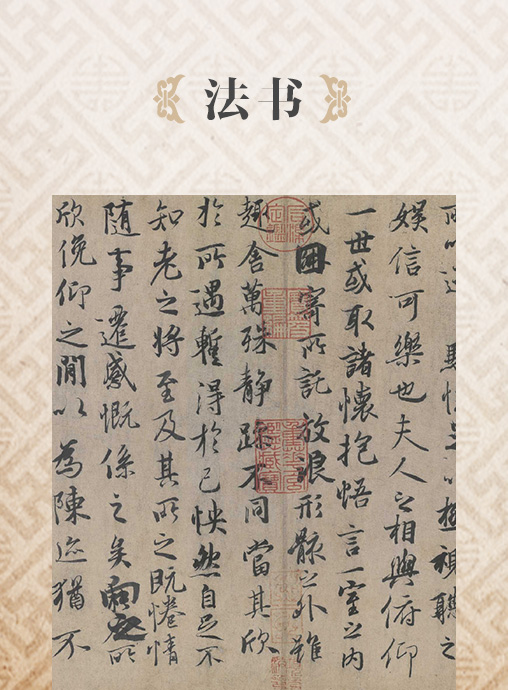 法书
視聽之
娛信可樂也夫人之相與俯仰
一世或取諸懷抱悟言一室之內
或因寄所託放浪形骸之外雖
趣舍萬殊靜躁不同當其欣
於所遇蹔得於己怏然自足不
知老之將至及其所之既惓情
隨事遷感慨係之矣向之所
欣俛仰之閒以為陳迹猶不